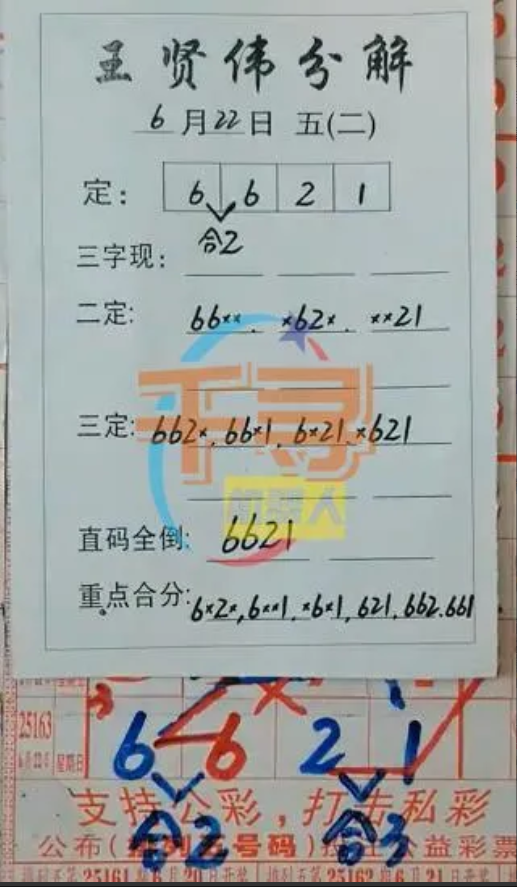 王贤伟分解
6月22日 五(二)
定: 6 6 2 1
合2
三字现:
二定: 66××. ×62×. ××21
三定: 662×, 66×1, 6×21, ×621
千寻
机器人
直码全倒: 6621
重点合分: 6×2×, 6××1, ×6×1, 621, 662. 661
25163
6月22日 星期日
6 6 2 1
合2 合3
支持公彩,打击私彩
公布(排列五号码)
公益彩票
排列五第25161期6月20日开奖 排列五第25162期6月21日开奖